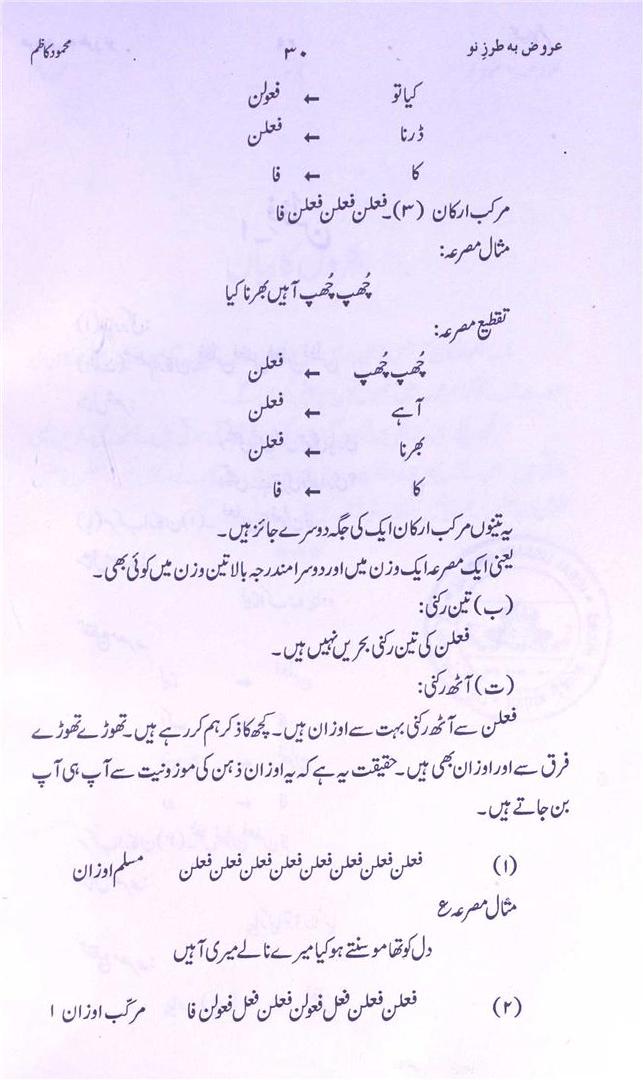 عروض بہ طرزِ نو ۳۰ محمود کاظم
کیا تو ← فعولن
ڈرنا ← فعلن
کا ← فا
مرکب ارکان (۳)۔ فعلن فعلن فعلن فا
مثال مصرعہ:
چُھپ چُھپ آہیں بھرنا کیا
تقطیع مصرعہ:
چھپ چُھپ ← فعلن
آہے ← فعلن
بھرنا ← فعلن
کا ← فا
یہ تینوں مرکب ارکان ایک کی جگہ دوسرے جائز ہیں۔
یعنی ایک مصرعہ ایک وزن میں اور دوسرا مندرجہ بالا تین وزن میں کوئی بھی۔
(ب) تین رکنی:
فعلن کی تین رکنی بحریں نہیں ہیں۔
(ت) آٹھ رکنی:
فعلن سے آٹھ رکنی بہت سے اوزان ہیں۔ کچھ کا ذکر ہم کر رہے ہیں۔ تھوڑے تھوڑے
فرق سے اور اوزان بھی ہیں۔ حقیقت یہ ہے کہ یہ اوزان ذہن کی موزونیت سے آپ ہی آپ
بن جاتے ہیں۔
(۱) فعلن فعلن فعلن فعلن فعلن فعلن فعلن فعلن مسلم اوزان
مثال مصرعہ ع
دل کو تھامو سنتے ہو کیا میرے نالے میری آہیں
(۲) فعلن فعلن فعل فعولن فعلن فعل فعولن فا مرکّب اوزان ۱